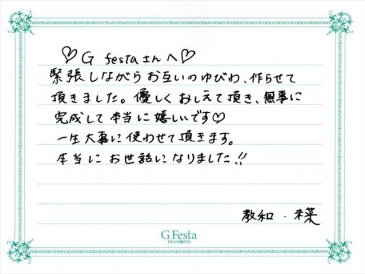 ♡G festaさんへ♡
緊張しながらお互いのゆびわ、作らせて
頂きました。優しくおしえて頂き、無事に
完成して本当に嬉しいです♡
一生大事に使わせて頂きます。
本当にお世話になりました!!
教和・
G.Festa
DIAMOND